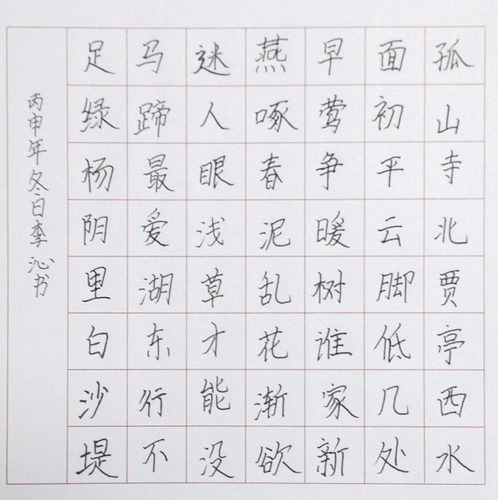 孤山寺北贾亭西水
面初平云脚低几处
早莺争暖树谁家新
燕啄春泥乱花渐欲
迷人眼浅草才能没
马蹄最爱湖东行不
足绿杨阴里白沙堤
丙申年冬日李沁书